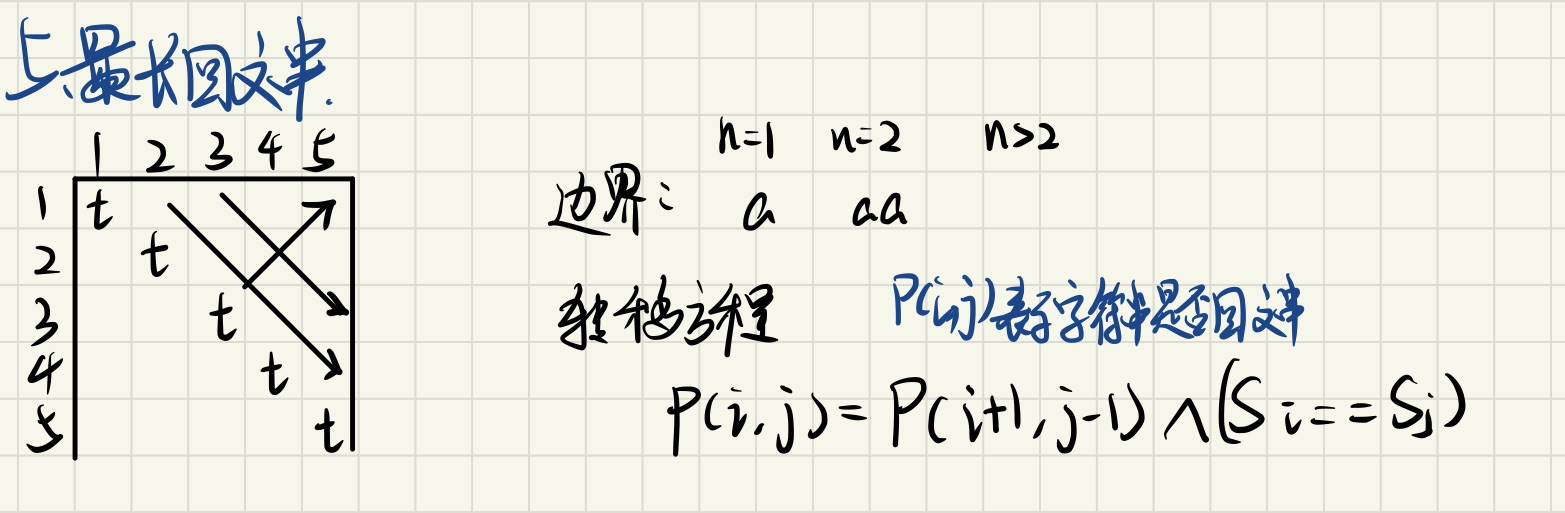 5.最长回文串.
1 2 3 4 5
1 t
2 t
3 t
4 t
5 t
n=1 n=2 n>2
边界: a aa
转移方程 P(i,j)表示字符串是否回文串
P(i,j)=P(i+1,j-1)∧(Si==Sj)